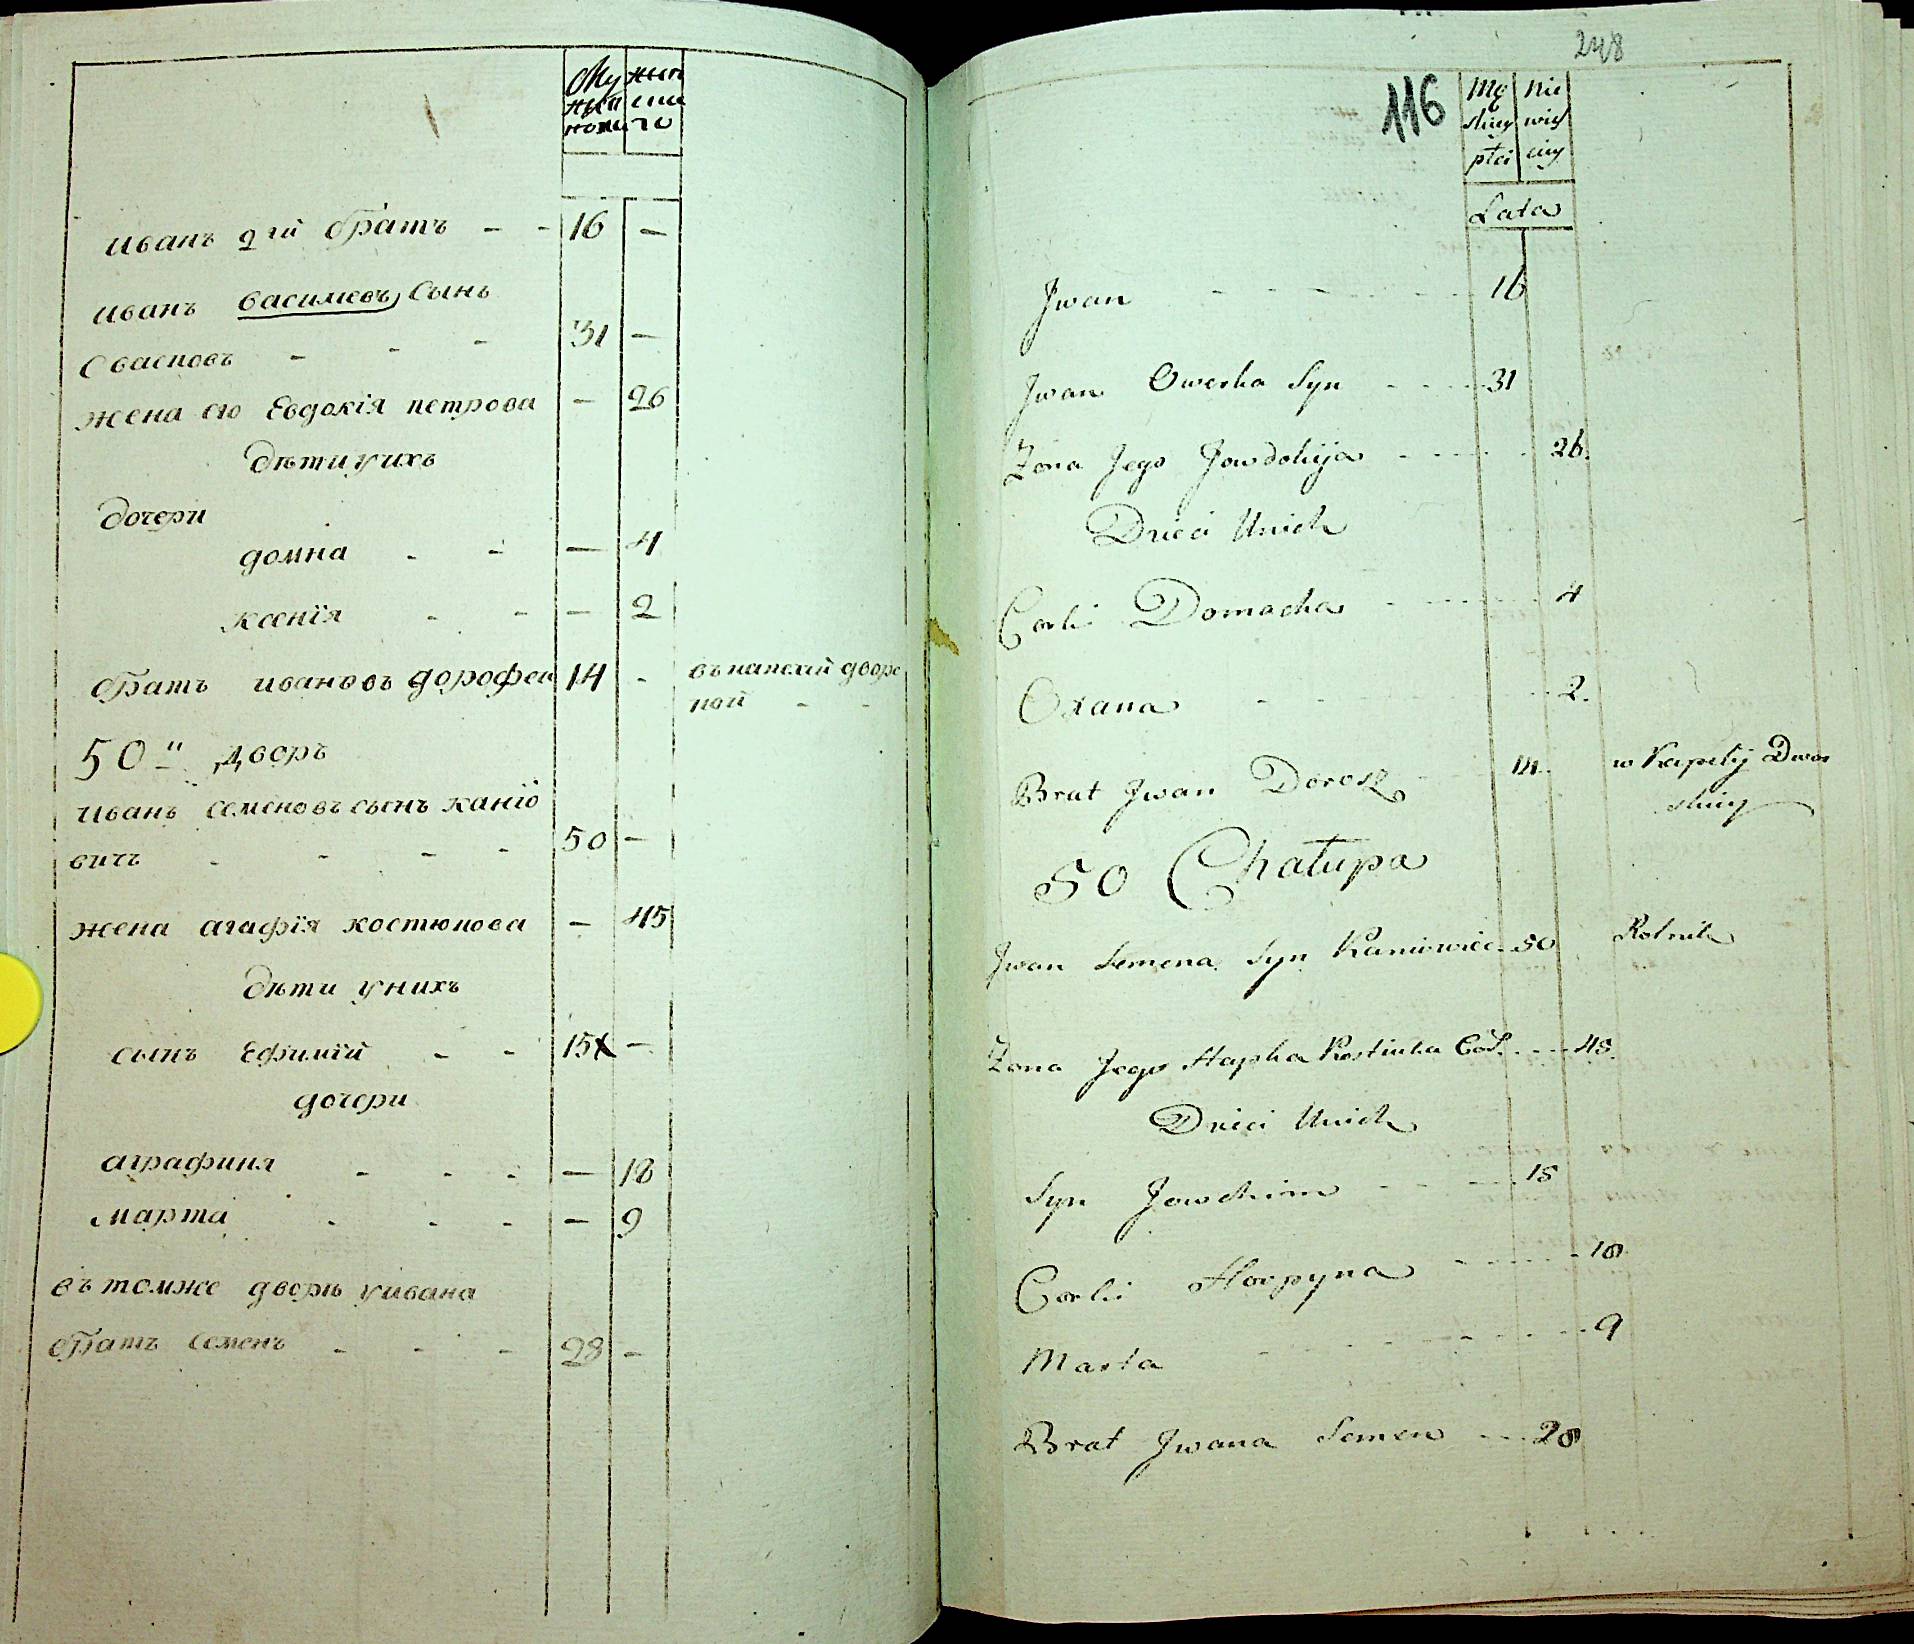 Му жен
жеск ска
пола го
иванъ 2гй братъ - - 16 -
иванъ василиевъ сынъ
31 -
жена ею Евдокія петрова - 26
дѣти у ихъ
дочери
домна - - - 4
ксенія - - - 2
братъ ивановъ дорофей 14 - въ панской дворс
ной - -
50й дворъ
иванъ семеновъ сынъ каніо
вичъ - - - - 50 -
жена агафія костюкова - 45
дѣти у нихъ
сынъ Ефимій - - 15 -
дочери
аграфиня - - - - 18
марта - - - - 9
въ томже дворѣ уивана
братъ семенъ - - - 28 -
248
116
Mę Nie
skiey wieś
płci ciey
Lata
Jwan - - - - - - 16
Jwan Owerka Syn - - - - 31
Zona Jego Jowdokija - - - - - 26.
Dzieci Unich
Corki Domacha - - - - - 4
Oxana - - - - 2.
Brat Jwan Dorosz - - 14. w Kapelij Dwor
skiey
50 Chałupa
Jwan Semena Syn Kaniowiec - 50 Rolnik
Zona Jego Hapka Kostiuka Cór. - - - 45.
Dzieci Unich
Syn Jowchim - - - - 15
Corki Horpyna - - - - - 18.
Marta - - - - - - - 9
Brat Jwana Semen - - - 28